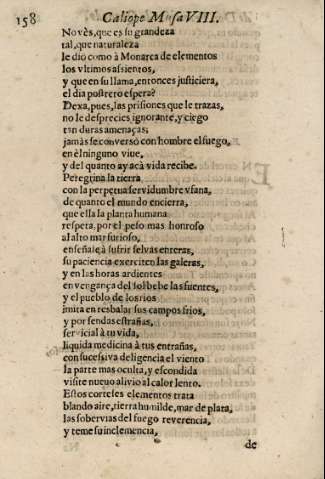 158 Caliope Musa VIII.
No vès, que es su grandeza
tal, que naturaleza
le diò como à Monarca de elementos
los vltimos assientos,
y que en su llama, entonces justiciera,
el dia postrero espera?
Dexa, pues, las prisiones que le trazas,
no le desprecies ignorante, y ciego
tan duras amenaças;
jamàs se conversò con hombre el fuego,
en èl ninguno viue,
y del quanto ay acà vida recibe.
Peregrina la tierra
con la perpetua servidumbre vfana,
de quanto el mundo encierra,
que ella la planta humana
respeta, por el peso mas honroso
al alto mar furioso,
enseñale à sufrir selvas enteras,
su paciencia exerciten las galeras,
y en las horas ardientes
en vengança del sol bebe las fuentes,
y el pueblo de los rios
imita en resbalar sus campos frios,
y por sendas estrañas,
servicial à tu vida,
liquida medicina à tus entrañas,
con sucessiva deligencia el viento
la parte mas oculta, y escondida
visite nuevo alivio al calor lento.
Estos corteses elementos trata
blando aire, tierra humilde, mar de plata,
las sobervias del fuego reverencia,
y teme su inclemencia,
de